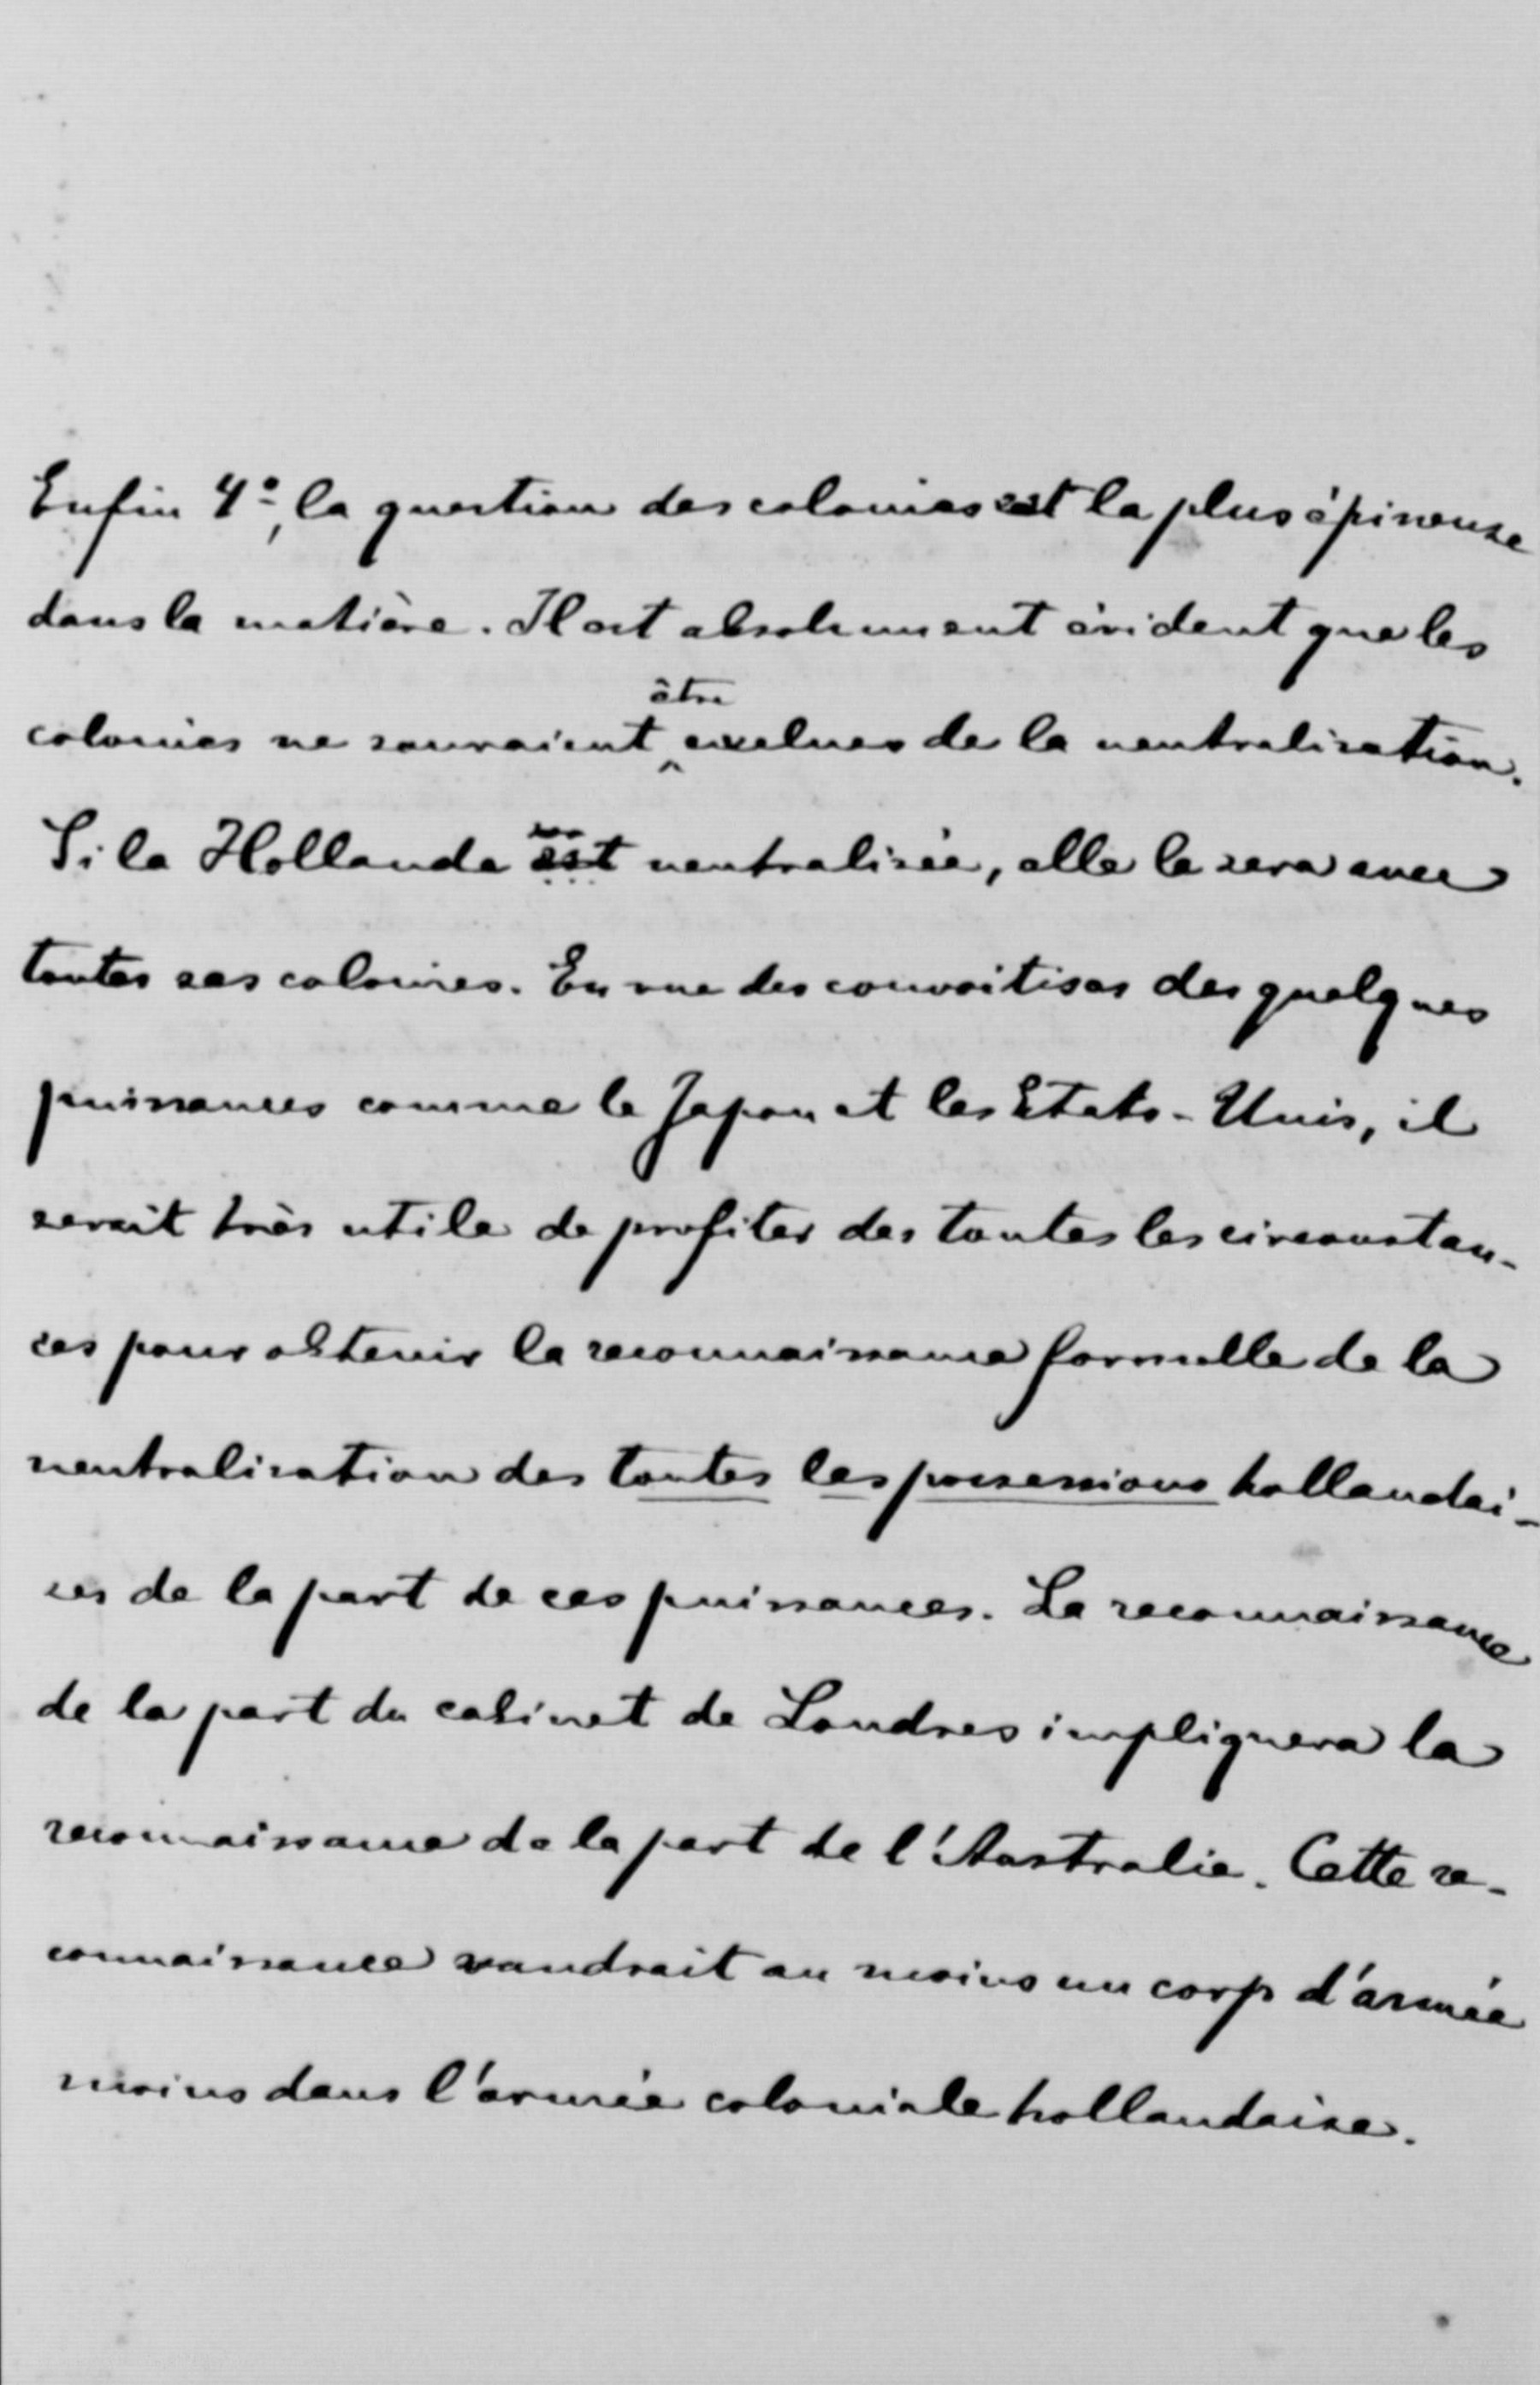 Enfin 4º, la question des colonies est la plus épineuse
dans la matière. Il est absolument évident que les
colonies ne sauraient être exclues de la neutralisation.
Si la Hollande est neutralisée, elle le sera avec
toutes ses colonies. En vue des convoitises des quelques
puissances comme le Japon et les Etats-Unis, il
serait très utile de profiter des toutes les circonstan-
ces pour obtenir la reconnaissance formelle de la
neutralisation des toutes les possessions hollandai-
ses de la part de ces puissances. La reconnaissance
de la part du cabinet de Londres impliquera la
reconnaissance de la part de l'Australie. Cette re-
connaissance vaudrait au moins un corps d'armée
moins dans l'armée coloniale hollandaise.